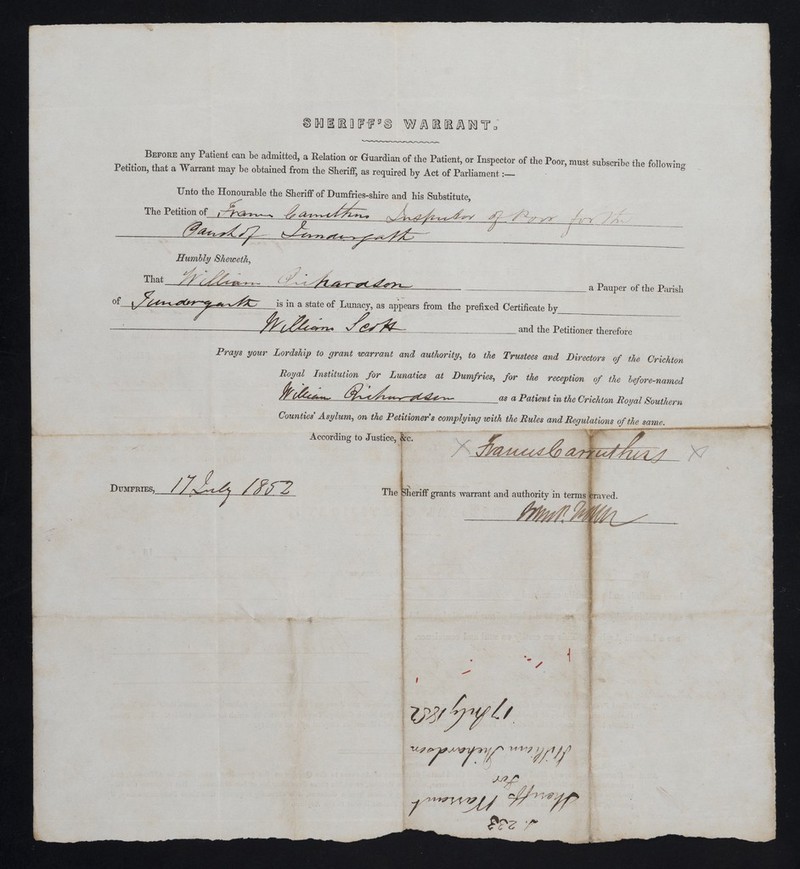 SHERIFF'S WARRANT.
BEFORE any Patient can be admitted, a Relation or Guardian of the Patient, or Inspector of the Poor, must subscribe the following
Petition, that a Warrant may be obtained from the Sheriff, as required by Act of Parliament :—
Unto the Honourable the Sheriff of Dumfries-shire and his Substitute,
The Petition of Francis Carruthers Inspector of Poor for the
Parish of Tundergarth
Humbly Sheweth,
That William Richardson a Pauper of the Parish
of Tundergarth is in a state of Lunacy, as appears from the prefixed Certificate by
William Scott and the Petitioner therefore
Prays your Lordship to grant warrant and authority, to the Trustees and Directors of the Crichton
Royal Institution for Lunatics at Dumfries, for the reception of the before-named
William Richardson as a Patient in the Crichton Royal Southern
Counties' Asylum, on the Petitioner's complying with the Rules and Regulations of the same.
According to Justice, &c.
X Francis Carruthers X
DUMFRIES, 17 July 1852 The Sheriff grants warrant and authority in terms craved.
233
Sheriffs Warrant
for
William Richardson
17 July 1852